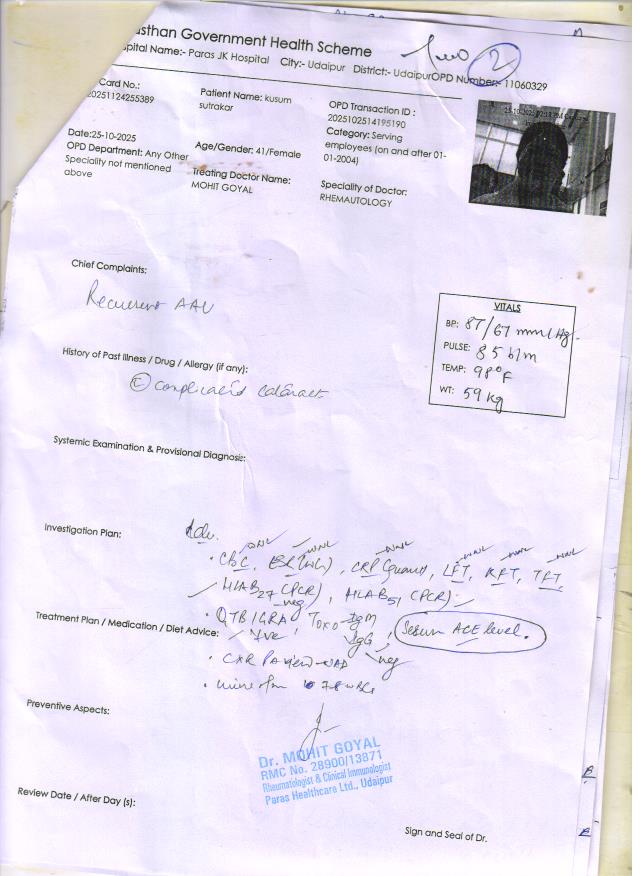 asthan Government Health Scheme
pital Name:- Paras JK Hospital City:- Udaipur District:- UdaipurOPD Number:- 11060329
2
Card No.:
20251124255389
Patient Name: kusum
sutrakar
OPD Transaction ID :
2025102514195190
Category: Serving
employees (on and after 01-
01-2004)
Date:25-10-2025
OPD Department: Any Other
Speciality not mentioned
above
Age/Gender: 41/Female
Treating Doctor Name:
MOHIT GOYAL
Speciality of Doctor:
RHEMAUTOLOGY
Chief Complaints:
Recurrent AAU
VITALS
BP: 87/67 mmHg.
PULSE: 85 b/m
TEMP: 98°F
WT: 59 kg
History of Past Illness / Drug / Allergy (if any):
C complicated cataract
Systemic Examination & Provisional Diagnosis:
Investigation Plan:
Adv.
WNL WNL WNL WNL WNL WNL
• CBC, ESR, CRP (quant), LFT, RFT, TFT
HLAB27 (PCR), HLAB51 (PCR)
neg
• QTB/IGRA, Toxo IgM
+ve IgG, Serum ACE level.
Treatment Plan / Medication / Diet Advice:
neg
• CXR PA view - NAD
Preventive Aspects:
Dr. MOHIT GOYAL
RMC No. 28900/13871
Rheumatologist & Clinical Immunologist
Paras Healthcare Ltd., Udaipur
Review Date / After Day (s):
Sign and Seal of Dr.
B
B